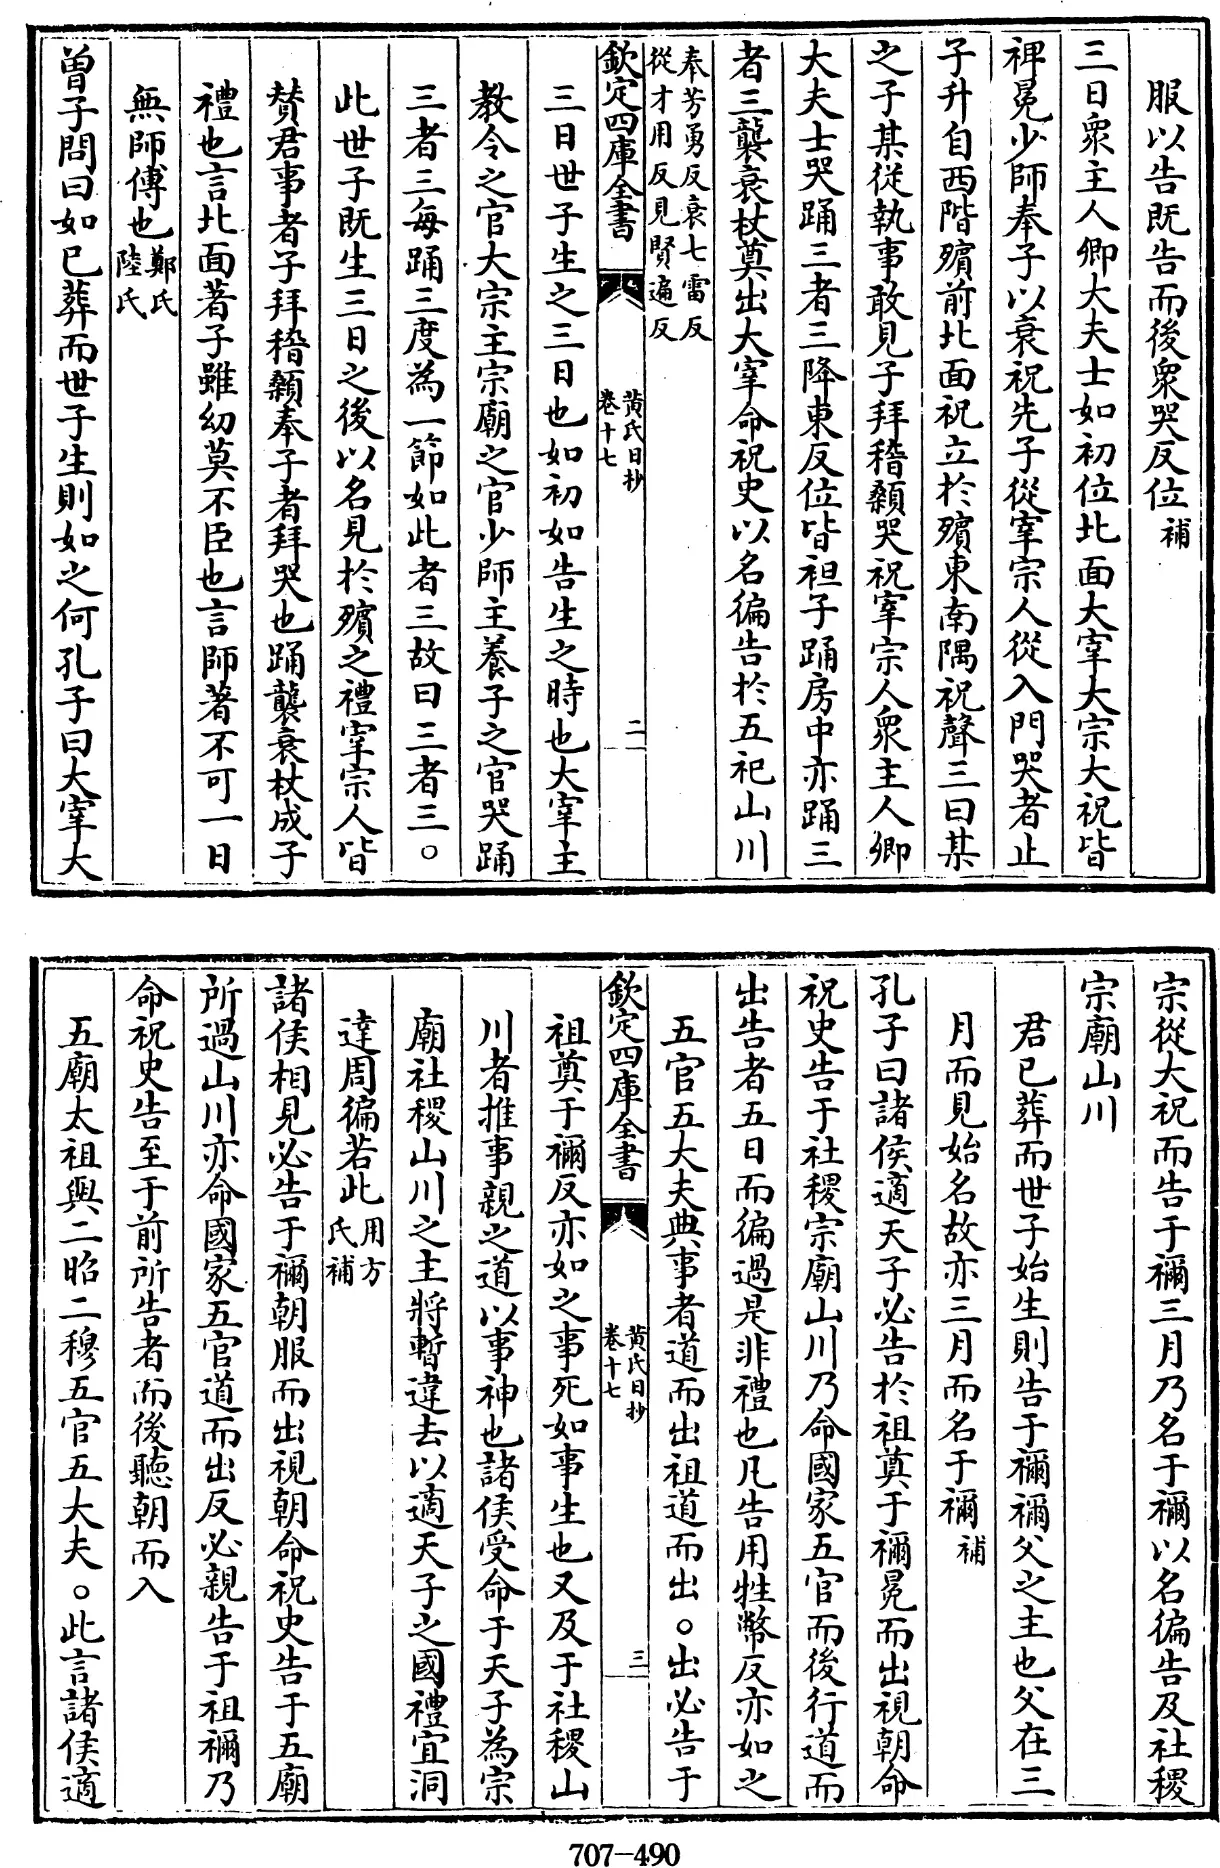 服以告既告而後衆哭反位補
三日衆主人卿大夫士如初位北面大宰大宗大祝皆
裨冕少師奉子以衰祝先子從宰宗人從入門哭者止
子升自西階殯前北面祝立於殯東南隅祝聲三曰某
之子某從執事敢見子拜稽顙哭祝宰宗人衆主人卿
大夫士哭踊三者三降東反位皆袒子踊房中亦踊三
者三襲衰杖奠出大宰命祝史以名徧告於五祀山川
奉芳勇反衰七雷反
從才用反見賢遍反
欽定四庫全書
黄氏日抄
卷十七
二
三日世子生之三日也如初如告生之時也大宰主
教令之官大宗主宗廟之官少師主養子之官哭踊
三者三每踊三度為一節如此者三故曰三者三○
此世子既生三日之後以名見於殯之禮宰宗人皆
賛君事者子拜稽顙奉子者拜哭也踊襲衰杖成子
禮也言北面著子雖幼莫不臣也言師著不可一日
無師傅也鄭氏
陸氏
曽子問曰如已葬而世子生則如之何孔子曰大宰大
宗從大祝而告于禰三月乃名于禰以名徧告及社稷
宗廟山川
君已葬而世子始生則告于禰禰父之主也父在三
月而見始名故亦三月而名于禰補
孔子曰諸侯適天子必告於祖奠于禰冕而出視朝命
祝史告于社稷宗廟山川乃命國家五官而後行道而
出告者五日而徧過是非禮也凡告用牲幣反亦如之
五官五大夫典事者道而出祖道而出○出必告于
欽定四庫全書
黄氏日抄
卷十七
三
祖奠于禰反亦如之事死如事生也又及于社稷山
川者推事親之道以事神也諸侯受命于天子為宗
廟社稷山川之主將暫違去以適天子之國禮宜洞
達周徧若此用方
氏補
諸侯相見必告于禰朝服而出視朝命祝史告于五廟
所過山川亦命國家五官道而出反必親告于祖禰乃
命祝史告至于前所告者而後聽朝而入
五廟太祖與二昭二穆五官五大夫○此言諸侯適
707-490